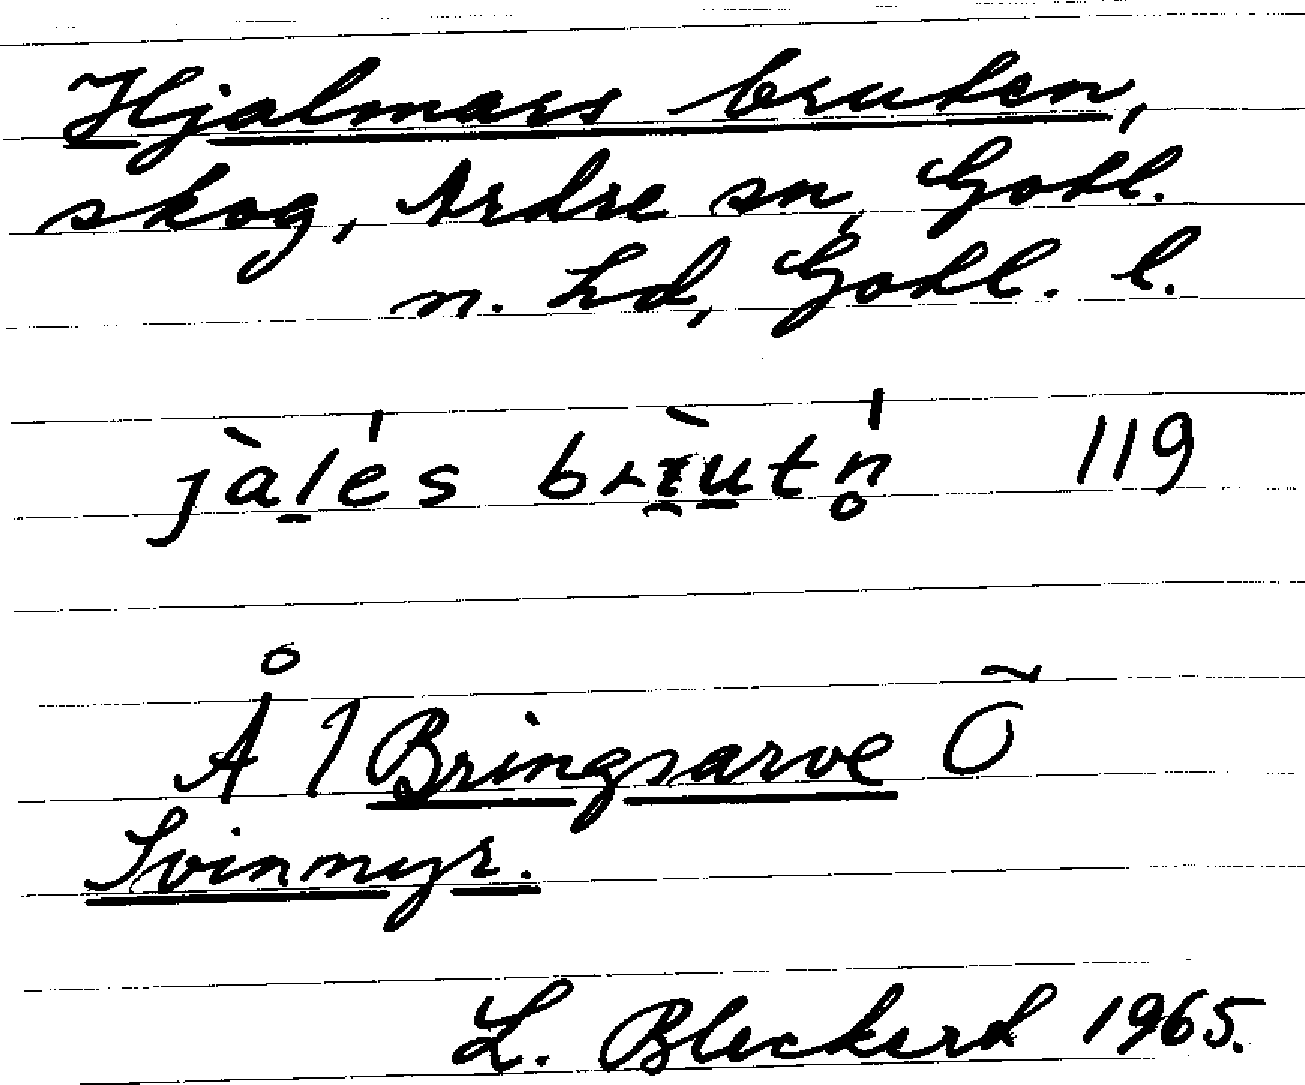 Hjalmars bruten,
skog, Ardre sn, Gotl.
n. hd, Gotl. l.
jàles brɪ̀utn̥ 119
Å / Bringsarve Õ
Svinmyr.
L. Bleckert 1965.